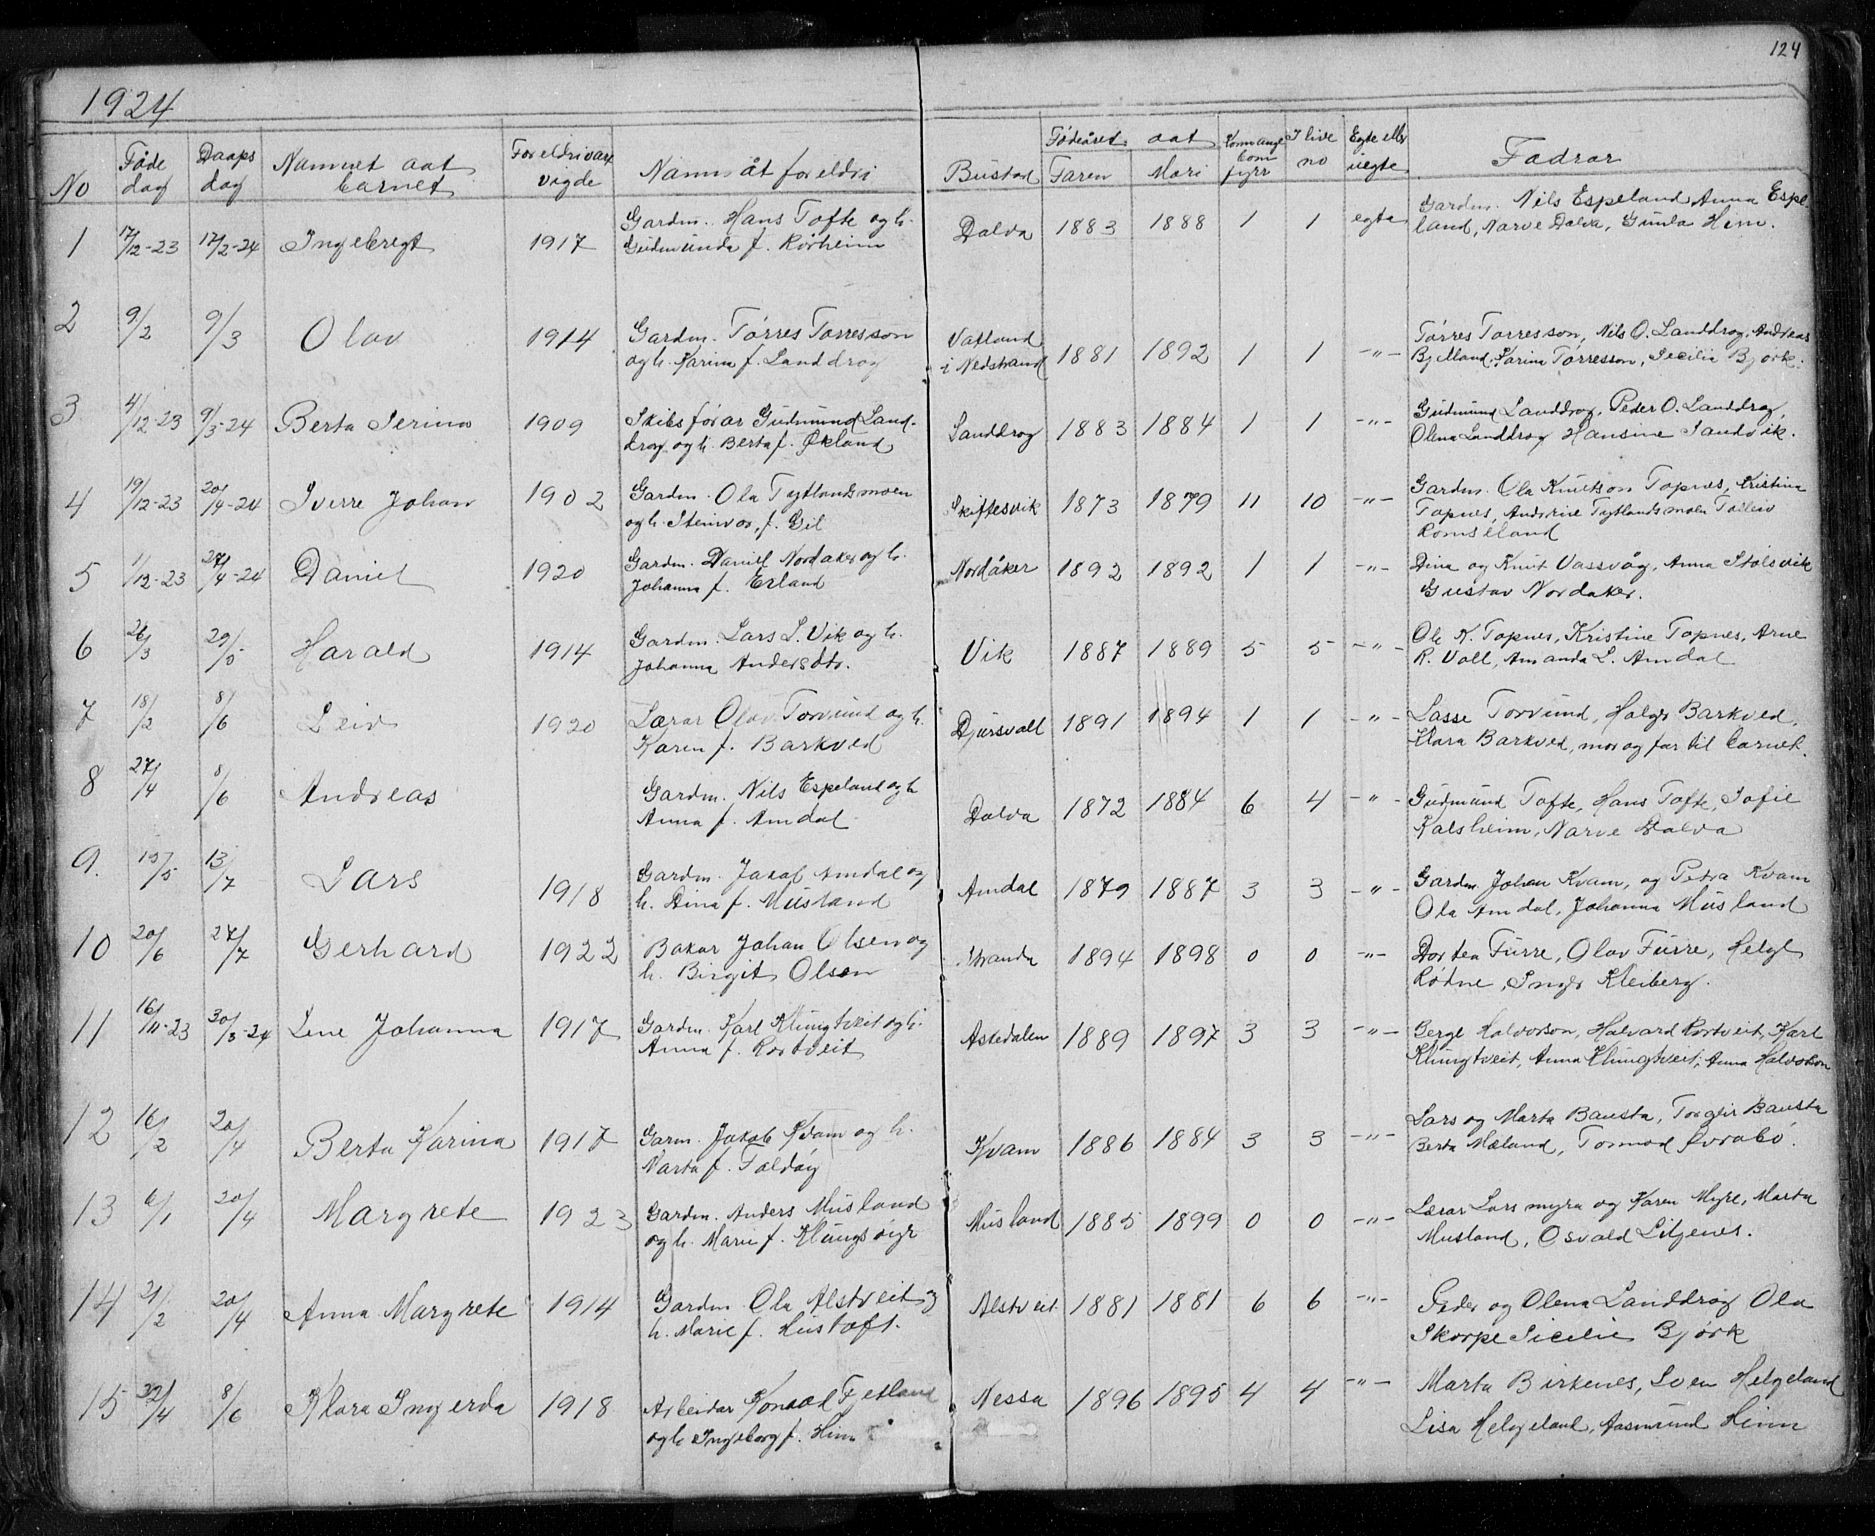 124
1924
No | Føde dag | Daaps dag | Namnet aat barnet | Foreldri var vigde | Namn åt foreldri | Bustad | Fødeåret aat Faren | Mori | I live no | Egte elle uegte | Fadrar
1 | 17/12-23 | 17/2-24 | Ingebregt | 1917 | Gardm. Hans Tofte og h. | Dalva | 1883 | 1888 | 1 | 1 | egte | Gardm. Nils Espeland Anna Espe
Gudmunda f. Rørheim | land, Narve Dalva, Gunla Heim.
2 | 9/2 | 9/3 | Olav | 1914 | Gardm. Tørres Tørresson | Vatland | 1881 | 1892 | 1 | 1 | -"- | Tørres Tørresson, Nils O. Landdrog, Andreas
og h. Karina f. Landdrog | i Nedstrand | Bjelland, Karina Tørresson, Secilia Bjørk.
3 | 4/12-23 | 9/3-24 | Berta Serina | 1909 | Skibsførar Gudmund Land- | Landdrog | 1883 | 1884 | 1 | 1 | -"- | Gudmund Landdrog, Peder O. Landdrog,
drog og h. Berta f. Økland | Olena Landdrog Hansine Sandvik.
4 | 19/12-23 | 20/4-24 | Sverre Johan | 1902 | Gardm. Ola Tytlandsmoen | Skiftesvik | 1873 | 1879 | 11 | 10 | -"- | Gardm. Ola Knutson Topnes, Kristina
og h. Steinvor, f. Gil | Topnes, Andrine Tytlandsmoen Tolleiv
Romseland
5 | 1/12-23 | 27/4-24 | Daniel | 1920 | Gardm. Daniel Nordaker og h. | Nordåker | 1892 | 1892 | 1 | 1 | -"- | Dina og Knut Vassvåg, Anna Stolsvik
Johanna f. Erland | Gustav Nordaker.
6 | 26/3 | 29/5 | Harald | 1914 | Gardm. Lars L. Vik og h. | Vik | 1887 | 1889 | 5 | 5 | -"- | Ole K. Topnes, Kristine Topnes, Arne
Johanna Andersdtr. | R. Voll, Amanda L. Amdal
7 | 18/2 | 8/6 | Leiv | 1920 | Lærar Olav Torvund og h. | Djursvoll | 1891 | 1894 | 1 | 1 | -"- | Lasse Torvund, Holger Barkved,
Karen f. Barkved | Klara Barkved, mor og far til barnet.
8 | 27/4 | 8/6 | Andreas | Gardm. Nils Espeland og h | Dalva | 1872 | 1884 | 6 | 4 | -"- | Gudmund Tofte, Hans Tofte, Sofie
Anna f. Amdal | Kalsheim, Narve Dalva
9. | 15/5 | 13/7 | Lars | 1918 | Gardm. Jakob Amdal og | Amdal | 1879 | 1887 | 3 | 3 | -"- | Gardm. Johan Kvam, og Petra Kvam
h. Dina f. Musland | Ola Amdal, Johanna Musland
10 | 20/6 | 27/7 | Gerhard | 1922 | Bakar Johan Olsen og | Stranda | 1894 | 1898 | 0 | 0 | -"- | Dortea Furre, Olav Furre, Helge
h. Birgit Olsen | Rødne, Inger Kleiberg.
11 | 16/11-23 | 30/3-24 | Lene Johanna | 1917 | Gardm. Karl Klungtveit og h. | Askedalen | 1889 | 1897 | 3 | 3 | -"- | Berge Halvorson, Halvard Rortveit, Karl
Anna f. Rortveit | Klungtveit, Anna Klungtveit, Anna Halvorson
12 | 16/2 | 20/4 | Berta Karina | 1917 | Garm. Jakob Kvam og h. | Kvam | 1886 | 1884 | 3 | 3 | -"- | Lars og Marta Bausta, Torgeir Bausta
Marta f. Foldøy | Berta Mæland, Tormod Øvrabø.
13 | 6/1 | 20/4 | Margrete | 1923 | Gardm. Anders Musland | Musland | 1885 | 1899 | 0 | 0 | -"- | Lærar Lars myra og Karen Myre, Marta
og h. Marie f. Klungsøyr | Musland, Osvald Litjenes.
14 | 21/2 | 20/4 | Anna Margrete | 1914 | Gardm. Ola Alstveit og | Alstveit | 1881 | 1881 | 6 | 6 | -"- | Peder og Olena Landdrog Ola
h. Marie f. Hustoft. | Skorpe Sicilie Bjørk
15 | 30/4 | 8/6 | Klara Ingerda | 1918 | Arbeidar Konrad Fjetland | Nessa | 1896 | 1895 | 4 | 4 | -"- | Marta Birkenes, Sven Helgeland
og h Ingeborg f. Heim | Lisa Helgeland, Aasmund Heim